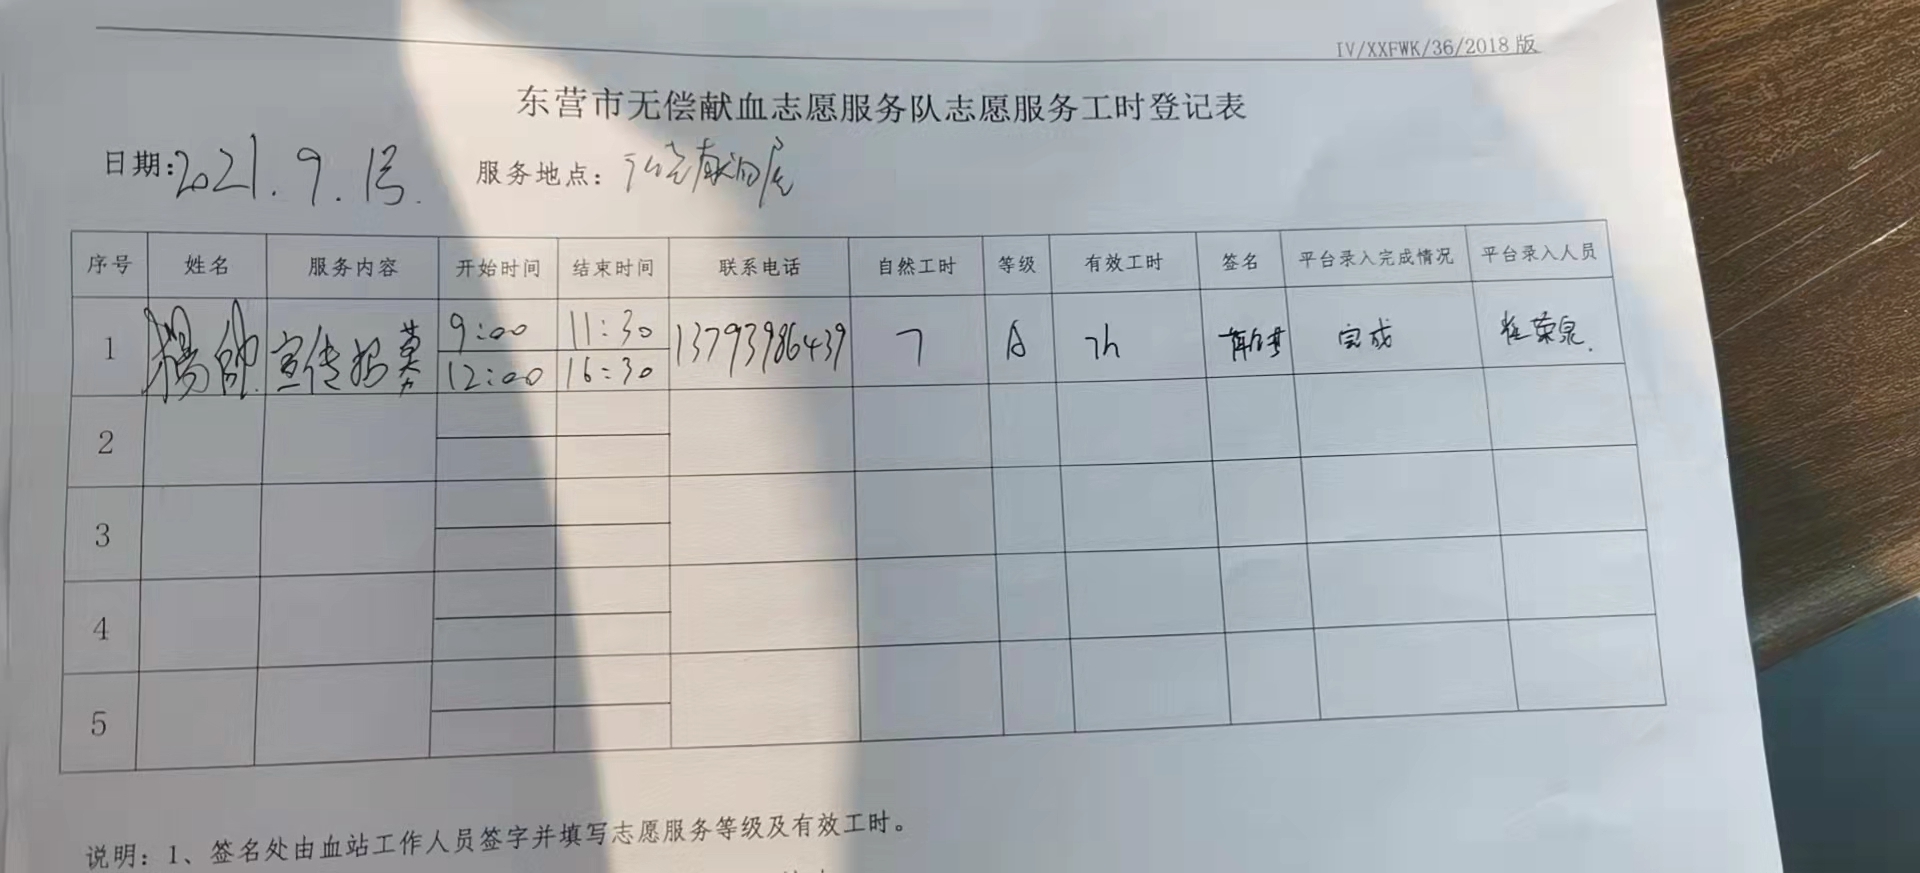 IV/XXFWK/36/2018版
东营市无偿献血志愿服务队志愿服务工时登记表
日期:2021.9.13 服务地点: 献血屋
序号 姓名 服务内容 开始时间 结束时间 联系电话 自然工时 等级 有效工时 签名 平台录入完成情况 平台录入人员
1 杨帅 宣传招募 9:00 11:30 13793986439 7 A 7h 完成 荣泉
12:00 16:30
2
3
4
5
说明：1、签名处由血站工作人员签字并填写志愿服务等级及有效工时。